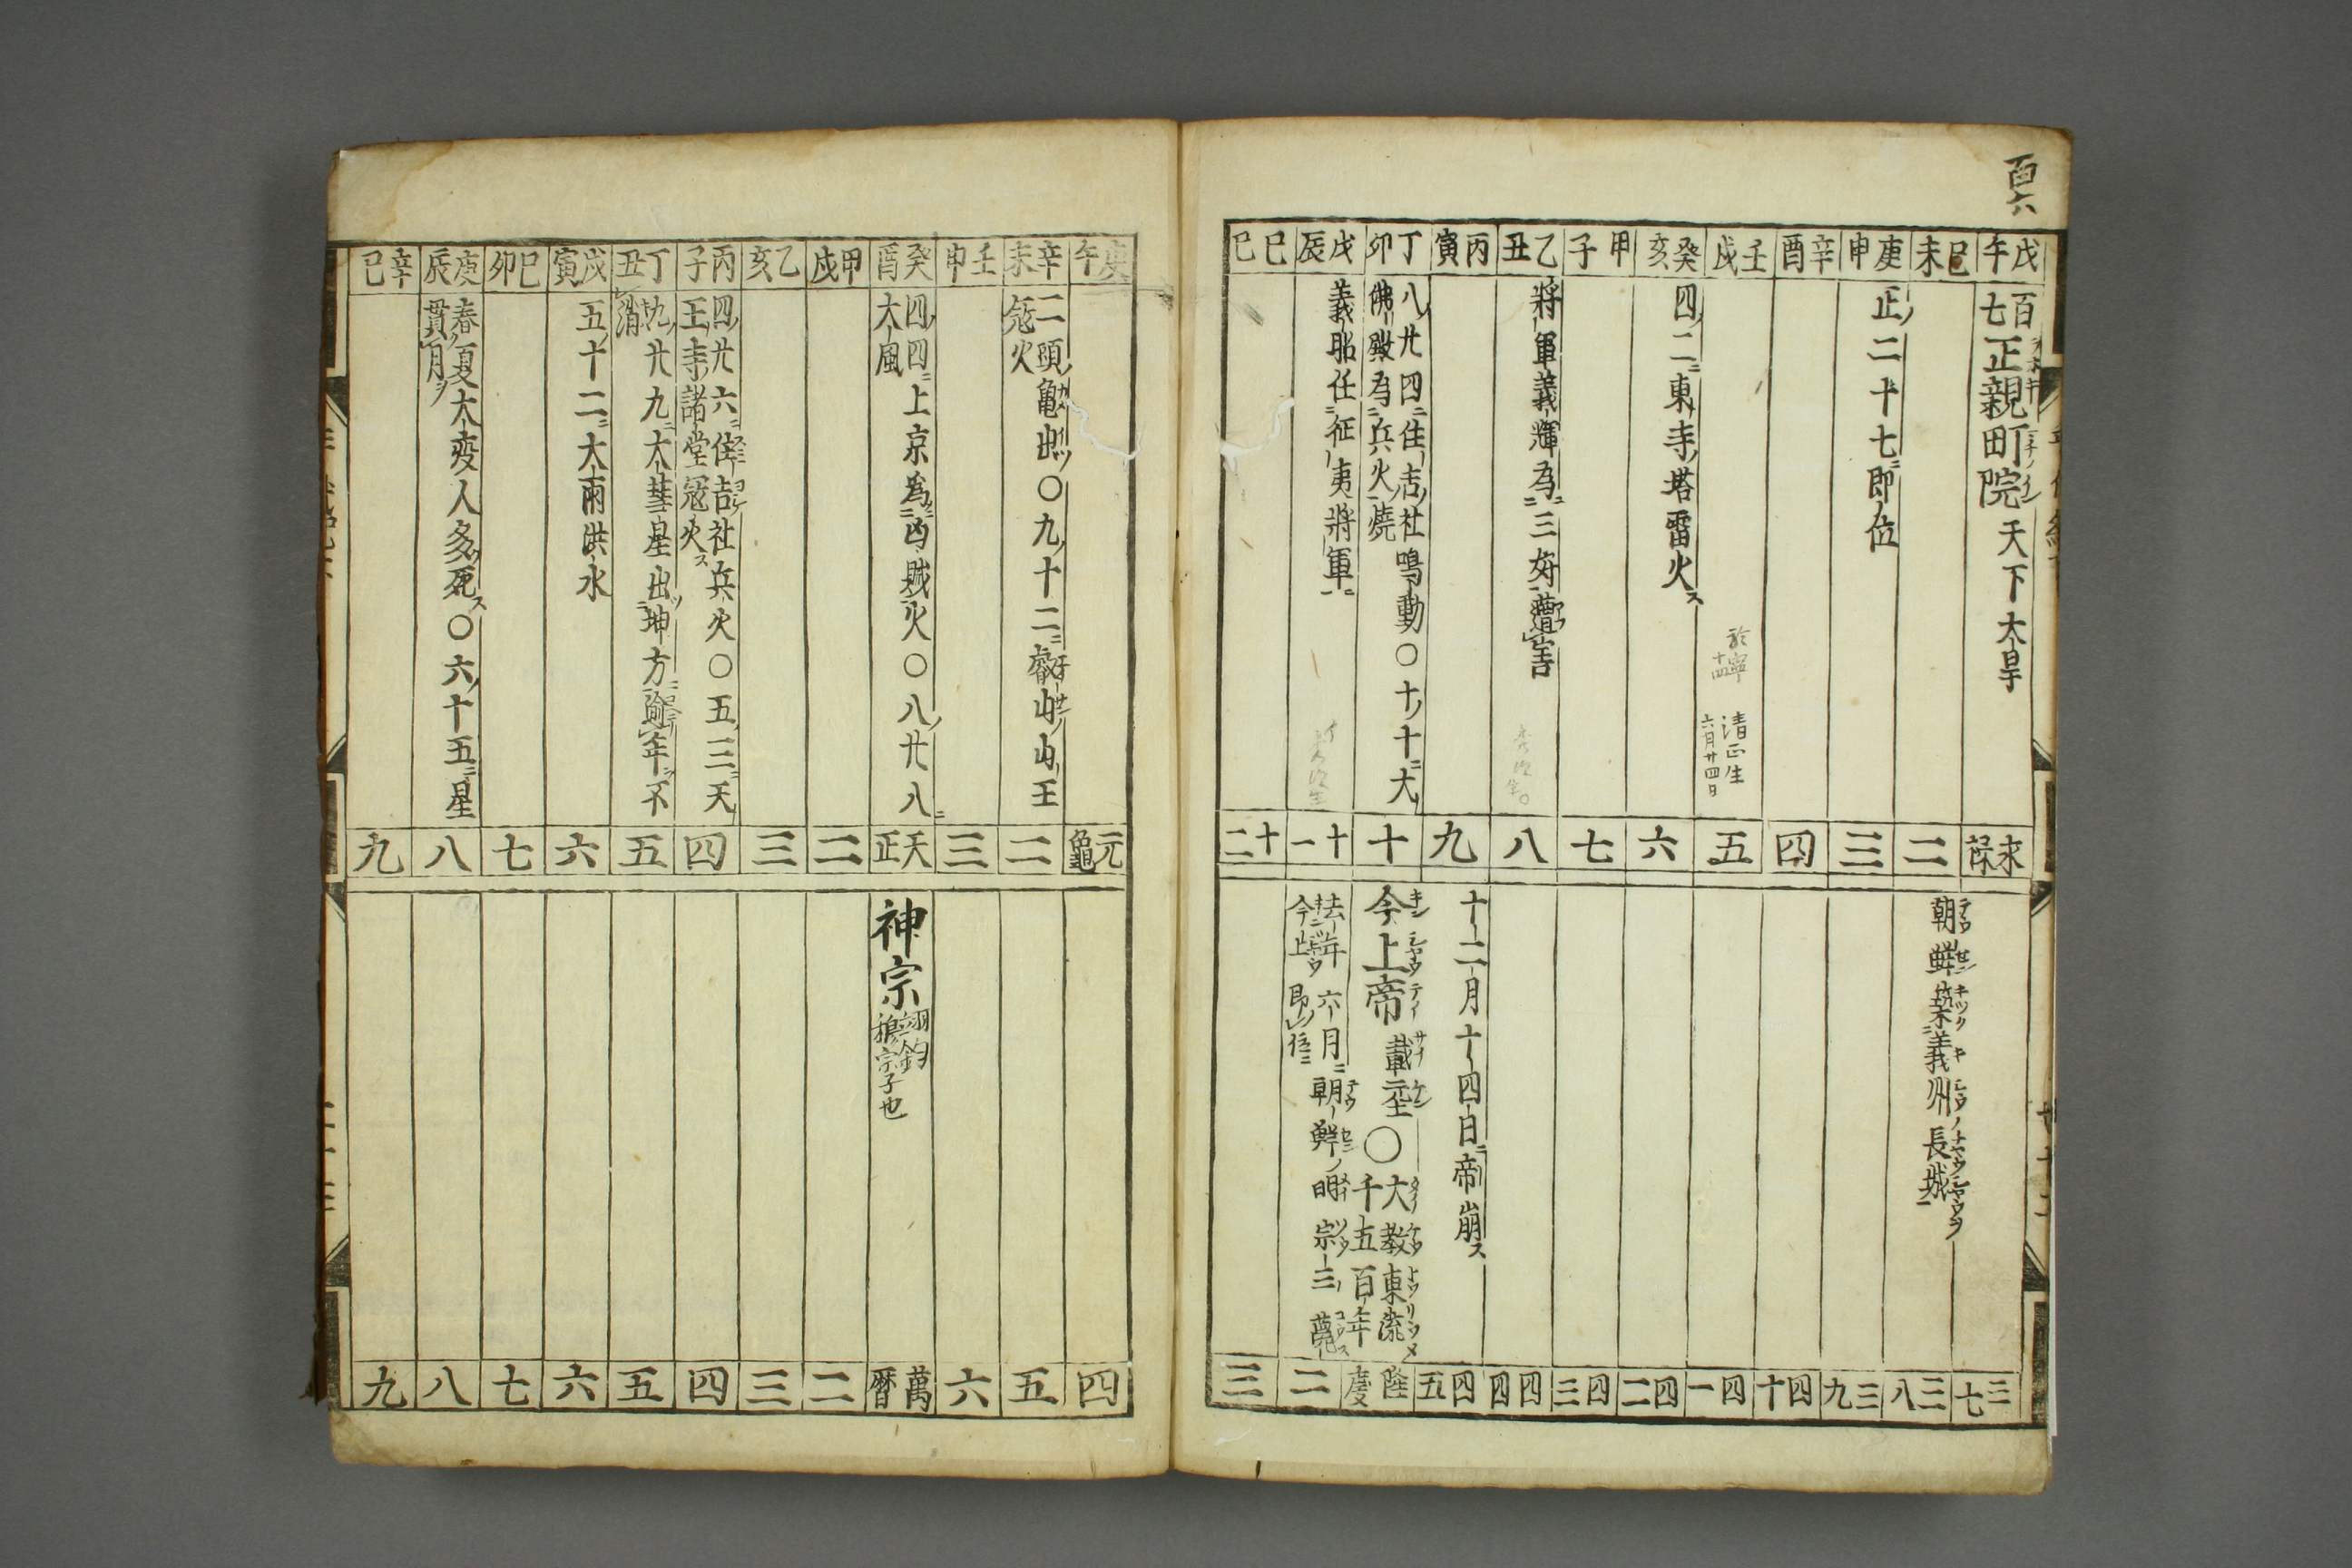 戊午
百七正親町院 天下大旱
永禄
三七
己未
二
朝鮮築義州長城
三八
庚申
正二十七即位
三
三九
辛酉
四
四十
壬戌
清正生
六月廿四日
五
四一
癸亥
四二東寺塔雷火ス
六
四二
甲子
七
四三
乙丑
將軍義輝為三好遭害
八
四四
丙寅
九
十二月十四日帝崩ス
四五
丁卯
八廿四住吉社鳴動〇十十大
佛殿為兵火燒
十
今上帝 載垕〇大教東流
千五百年
隆慶
戊辰
義昭任征夷將軍
十一
去年六月朝鮮ノ明宗三薨ス
今上即位
二
己巳
十二
三
庚午
元龜
四
辛未
二頭龜出〇九十二叡山山王
寇火
二
五
壬申
三
六
癸酉
四四上京為凶賊火〇八廿八
大風
天正
神宗 翊鈞
穆宗子也
萬曆
甲戌
二
二
乙亥
三
三
丙子
四廿六住吉社兵火〇五三天
王寺諸堂寇火ス
四
四
丁丑
九廿九大彗星出坤方踰年不
消
五
五
戊寅
五十二大雨洪水
六
六
己卯
七
七
庚辰
春夏大疫人多死ス〇六十五星
貫月ヲ
八
八
辛巳
九
九